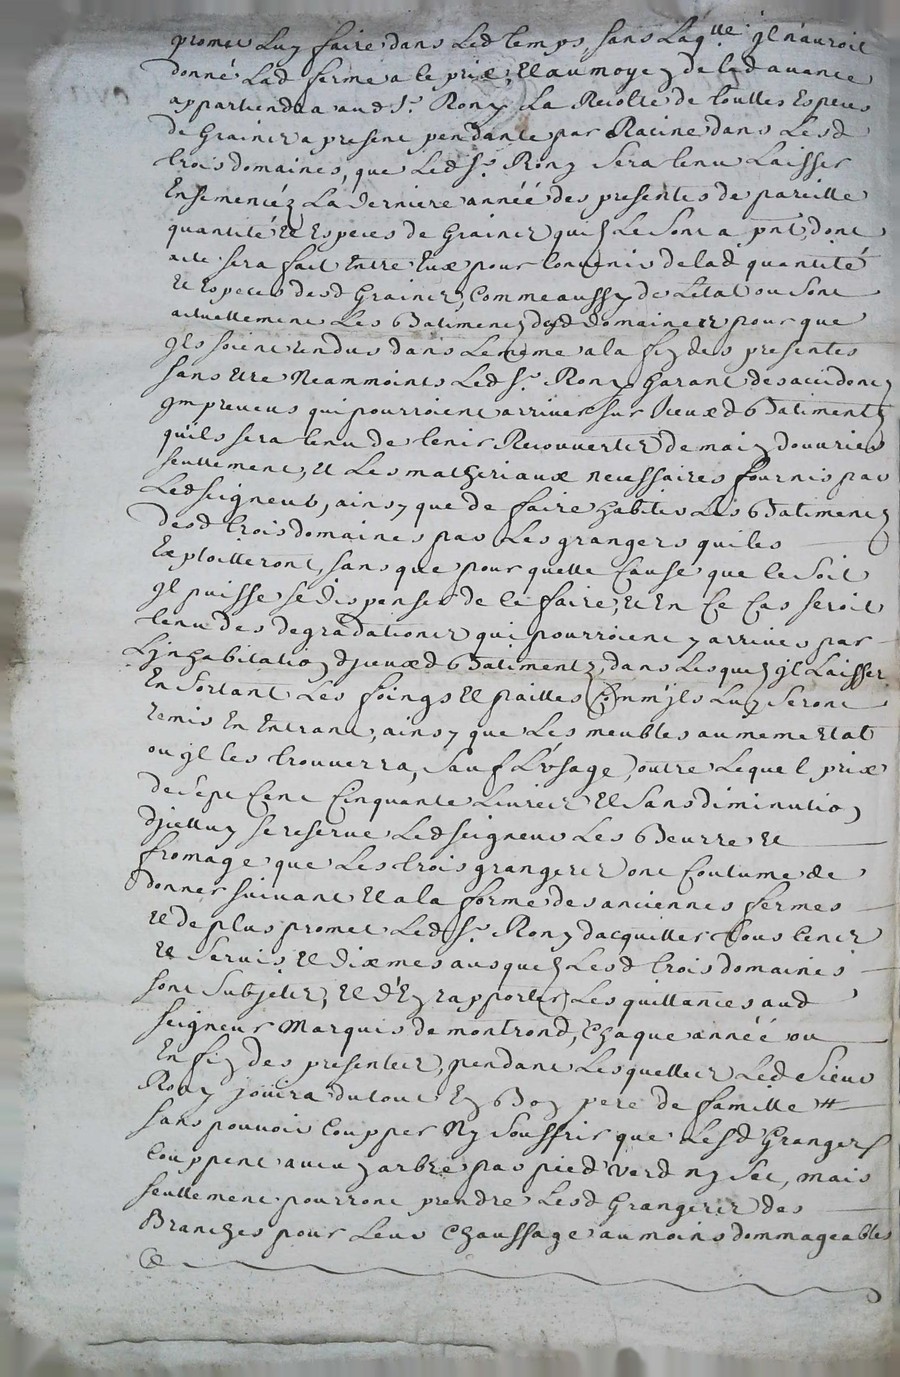 promet Luy faire dans Led temps, sans Laqlle jl n'auroit
donné Lad ferme a ce prix, Et au moyen de lad avance
appartiendra aud Sr. Rony La Recolte de touttes Especes
de Graines a present pendante par Racine dans Lesd
trois domaines, que Led Sr. Rony Sera tenu Laisser
Ensemencéz La derniere année des presentes de pareille
quantité Et Especes de Graines quil Le Sont a pnt, dont
acte sera fait Entre Eux pour Convenir de lad quantité
Et Especes desd Graines, Comme aussy de L'Etat ou Sont
actuellement Les Batiments dysd domaines pour que
jls soient rendus dans Le meme a la fin des presentes
sans Etre Neammoints Led Sr. Rony Garant des accidents
jmpreveus qui pourroient arriver sur jceuxd Batiments
quils sera tenu de tenir Recouverts de main douvrier
seullement, Et Les matheriaux necessaires fournis par
Led seigneur, ainsy que de faire habiter Les Batiments
desd trois domaines par Les grangers qui les
Exploitteront, sans que pour quelle Cause que ce Soit
jl puisse se dispenser de le faire, Et En Ce Cas seroit
tenu des degradations qui pourroient y arriver par
L'jnhabitation djceuxd Batiments, dans Lesquels jl Laissera
En Sortant Les foings Et pailles Comm'jls Luy Seront
remis En Entrant, ainsy que Les meubles au meme Etat
ou jl les trouverra, Sauf L'Vsage, outre Lequel prix
de Sept Cent Cinquante Livres Et Sans diminution
djcelluy se reserve Led seigneur Les Beurre Et
fromage que Les trois grangers ont Coutume de
donner suivant Et a la forme des anciennes fermes
Et de plus promet Led Sr. Rony dacquitter tous Cencs
Et Servis Et Dixmes ausquels Lesd trois domaines
sont Subjets, Et d'En rapporter Les quittances aud
seigneur Marquis de montrond, Chaque année ou
En fin des presentes, pendant Lesquelles Led Sieur
Rony jouira du tout En Bon pere de famille #
sans pouvoir Coupper Ny Souffrir que Lesd Grangers
Couppent aucun arbre par pied Verd ny Sec, mais
seullement pourront prendre Lesd Grangers des
Branches pour Leur Chauffage au moins dommageables